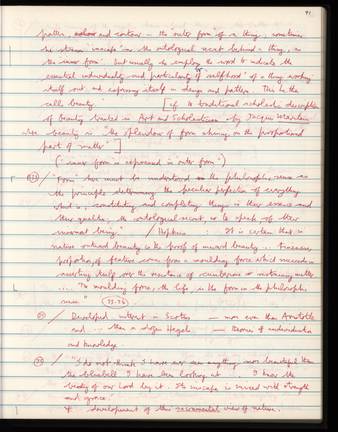 91
pattern, colour and contour — the 'outer form' of a thing, sometimes
he stresses 'inscape' as the ontological secret behind a thing, as
the 'inner form'. But usually he employs the word to indicate the
essential individuality and particularity or 'selfhood' of a thing working
itself out and expressing itself in design and pattern. This he
calls beauty. [cf to traditional scholastic description
of beauty quoted in Art and Scholasticism by Jacques Maritain
where beauty is "the splendour of form shining on the proportioned
part of matter"]
("inner form is expressed in outer form")
"Form" here must be understood in the philosophic sense as
the principle determining the peculiar perfection of everything
which is, constituting and completing things in their essence and
their qualities, the ontological secret, so to speak of their
innermost being" / Hopkins : It is certain that in
nature outward beauty is the proof of inward beauty ... Fineness,
proportion, of feature comes from a moulding force which succeeds in
asserting itself over the resistance of cumbersome or restraining matter
.... The moulding force, the life, is the form in the philosophic
sense" (75-76)
/ Developed interest in Scotus — more even than Aristotle
and ... than a dozen Hegels — theories of individuation
and knowledge
/ "I do not think I have ever seen anything more beautiful than
the bluebell I have been looking at ... I know the
beauty of our Lord by it. Its inscape is mixed with strength
and grace."
development of this sacramental view of nature.